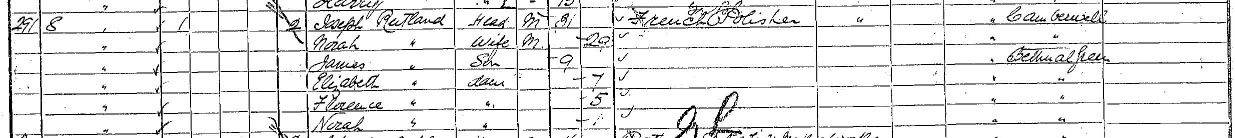 Harry " " 15
291 8 " 1 2 Joseph Rutland Head M 31 French Polisher " " Camberwell
" Norah " Wife M 29 " "
" James " Son 9 " Bethnal Green
" Elizabeth " daur 7 " "
" Florence " " 5 " "
" Norah " " 1 " "